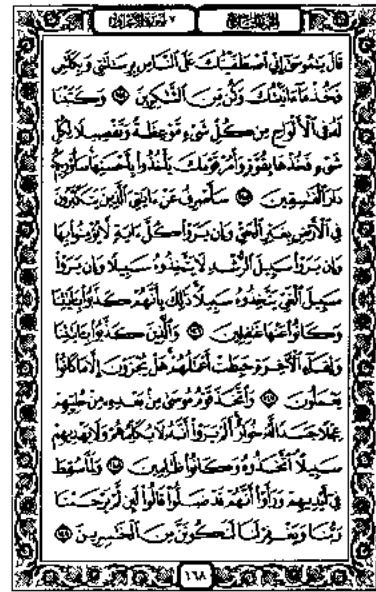 الجزء التاسع
٧ سورة الأعراف
قَالَ يَٰمُوسَىٰٓ إِنِّى ٱصْطَفَيْتُكَ عَلَى ٱلنَّاسِ بِرِسَٰلَٰتِى وَبِكَلَٰمِى
فَخُذْ مَآ ءَاتَيْتُكَ وَكُن مِّنَ ٱلشَّٰكِرِينَ ١٤٤ وَكَتَبْنَا
لَهُۥ فِى ٱلْأَلْوَاحِ مِن كُلِّ شَىْءٍ مَّوْعِظَةً وَتَفْصِيلًا لِّكُلِّ
شَىْءٍ فَخُذْهَا بِقُوَّةٍ وَأْمُرْ قَوْمَكَ يَأْخُذُوا۟ بِأَحْسَنِهَا سَأُو۟رِيكُمْ
دَارَ ٱلْفَٰسِقِينَ ١٤٥ سَأَصْرِفُ عَنْ ءَايَٰتِىَ ٱلَّذِينَ يَتَكَبَّرُونَ
فِى ٱلْأَرْضِ بِغَيْرِ ٱلْحَقِّ وَإِن يَرَوْا۟ كُلَّ ءَايَةٍ لَّا يُؤْمِنُوا۟ بِهَا
وَإِن يَرَوْا۟ سَبِيلَ ٱلرُّشْدِ لَا يَتَّخِذُوهُ سَبِيلًا وَإِن يَرَوْا۟
سَبِيلَ ٱلْغَىِّ يَتَّخِذُوهُ سَبِيلًا ذَٰلِكَ بِأَنَّهُمْ كَذَّبُوا۟ بِـَٔايَٰتِنَا
وَكَانُوا۟ عَنْهَا غَٰفِلِينَ ١٤٦ وَٱلَّذِينَ كَذَّبُوا۟ بِـَٔايَٰتِنَا
وَلِقَآءِ ٱلْأَخِرَةِ حَبِطَتْ أَعْمَٰلُهُمْ هَلْ يُجْزَوْنَ إِلَّا مَا كَانُوا۟
يَعْمَلُونَ ١٤٧ وَٱتَّخَذَ قَوْمُ مُوسَىٰ مِنۢ بَعْدِهِۦ مِنْ حُلِيِّهِمْ
عِجْلًا جَسَدًا لَّهُۥ خُوَارٌ أَلَمْ يَرَوْا۟ أَنَّهُۥ لَا يُكَلِّمُهُمْ وَلَا يَهْدِيهِمْ
سَبِيلًا ٱتَّخَذُوهُ وَكَانُوا۟ ظَٰلِمِينَ ١٤٨ وَلَمَّا سُقِطَ
فِىٓ أَيْدِيهِمْ وَرَأَوْا۟ أَنَّهُمْ قَدْ ضَلُّوا۟ قَالُوا۟ لَئِن لَّمْ يَرْحَمْنَا
رَبُّنَا وَيَغْفِرْ لَنَا لَنَكُونَنَّ مِنَ ٱلْخَٰسِرِينَ ١٤٩
١٦٨